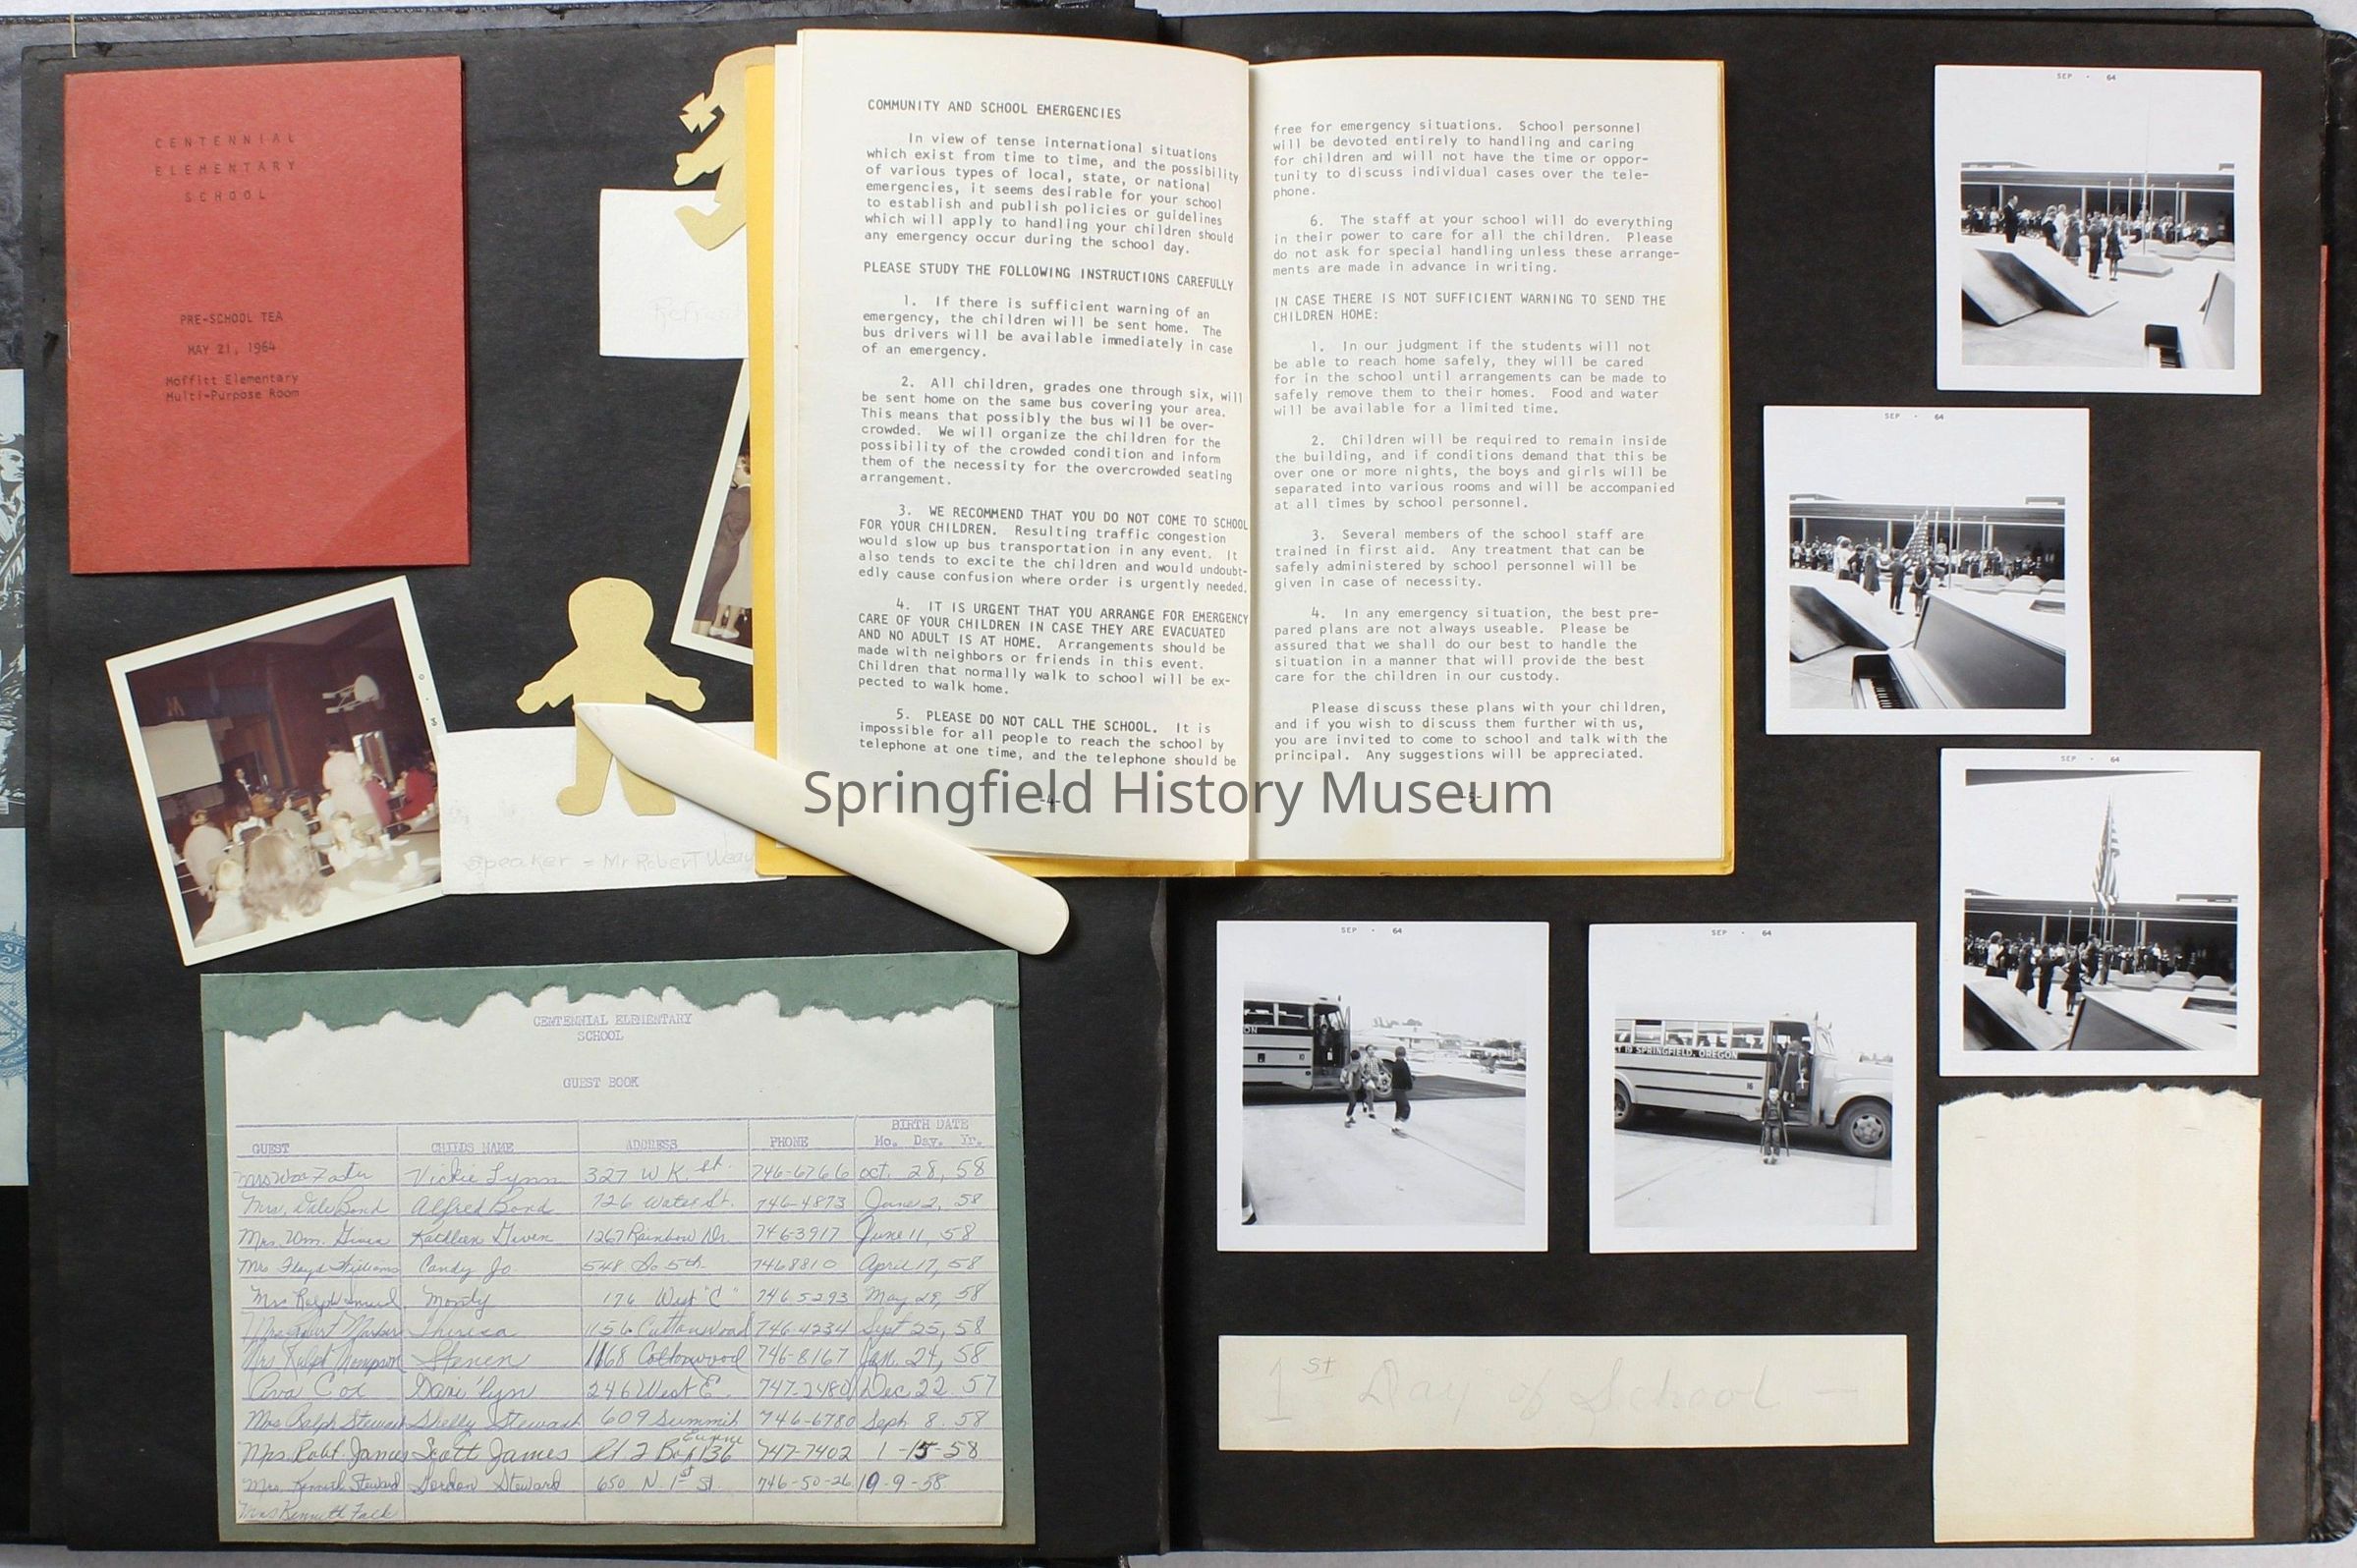 CENTENNIAL
ELEMENTARY
SCHOOL
PRE-SCHOOL TEA
MAY 21, 1964
Moffitt Elementary
Multi-Purpose Room
COMMUNITY AND SCHOOL EMERGENCIES
In view of tense international situations
which exist from time to time, and the possibility
of various types of local, state, or national
emergencies, it seems desirable for your school
to establish and publish policies or guidelines
which will apply to handling your children should
any emergency occur during the school day.
PLEASE STUDY THE FOLLOWING INSTRUCTIONS CAREFULLY
1. If there is sufficient warning of an
emergency, the children will be sent home. The
bus drivers will be available immediately in case
of an emergency.
2. All children, grades one through six, will
be sent home on the same bus covering your area.
This means that possibly the bus will be over-
crowded. We will organize the children for the
possibility of the crowded condition and inform
them of the necessity for the overcrowded seating
arrangement.
3. WE RECOMMEND THAT YOU DO NOT COME TO SCHOOL
FOR YOUR CHILDREN. Resulting traffic congestion
would slow up bus transportation in any event. It
also tends to excite the children and would undoubt-
edly cause confusion where order is urgently needed.
4. IT IS URGENT THAT YOU ARRANGE FOR EMERGENCY
CARE OF YOUR CHILDREN IN CASE THEY ARE EVACUATED
AND NO ADULT IS AT HOME. Arrangements should be
made with neighbors or friends in this event.
Children that normally walk to school will be ex-
pected to walk home.
5. PLEASE DO NOT CALL THE SCHOOL. It is
impossible for all people to reach the school by
telephone at one time, and the telephone should be
-4-
free for emergency situations. School personnel
will be devoted entirely to handling and caring
for children and will not have the time or oppor-
tunity to discuss individual cases over the tele-
phone.
6. The staff at your school will do everything
in their power to care for all the children. Please
do not ask for special handling unless these arrange-
ments are made in advance in writing.
IN CASE THERE IS NOT SUFFICIENT WARNING TO SEND THE
CHILDREN HOME:
1. In our judgment if the students will not
be able to reach home safely, they will be cared
for in the school until arrangements can be made to
safely remove them to their homes. Food and water
will be available for a limited time.
2. Children will be required to remain inside
the building, and if conditions demand that this be
over one or more nights, the boys and girls will be
separated into various rooms and will be accompanied
at all times by school personnel.
3. Several members of the school staff are
trained in first aid. Any treatment that can be
safely administered by school personnel will be
given in case of necessity.
4. In any emergency situation, the best pre-
pared plans are not always useable. Please be
assured that we shall do our best to handle the
situation in a manner that will provide the best
care for the children in our custody.
Please discuss these plans with your children,
and if you wish to discuss them further with us,
you are invited to come to school and talk with the
principal. Any suggestions will be appreciated.
-5-
Springfield History Museum
SEP · 64
SEP · 64
SEP · 64
SEP · 64
SEP · 64
ON
10
T 19 SPRINGFIELD, OREGON
16
Speaker - Mr Robert Weav
CENTENNIAL ELEMENTARY
SCHOOL
GUEST BOOK
GUEST CHILDS NAME ADDRESS PHONE BIRTH DATE
Mo. Day. Yr.
Vickie Lynn 327 W K. St. 746-6766 Oct. 28, 58
Mrs. Dale Bond Alfred Bond 726 Water St. 746-4873 June 2, 58
Mrs. Wm. Given Kathleen Given 1267 Rainbow Dr. 746-3917 June 11, 58
Mrs Floyd Williams Candy Jo 548 So 5th 7468810 April 17, 58
Mrs Ralph Monty 176 West "C" 746 5293 May 29, 58
Mrs Theresa 1156 Cottonwood 746-4234 Sept 25, 58
Mrs Ralph Thompson Steven 1168 Cottonwood 746-8167 Jan. 24, 58
Ava Cox Dari'lyn 246 West E. 747-2480 Dec 22. 57
Mrs Ralph Stewart Shelly Stewart 609 Summit 746-6780 Sept 8. 58
Mrs. Robt. James Scott James Rt 2 Box 136 Eugene 747-7402 1-15-58
Mrs. Kenneth Steward Gordon Steward 650 N. 1st St. 746-50-26 10-9-58
Mrs Kenneth Falk
1st Day of School -